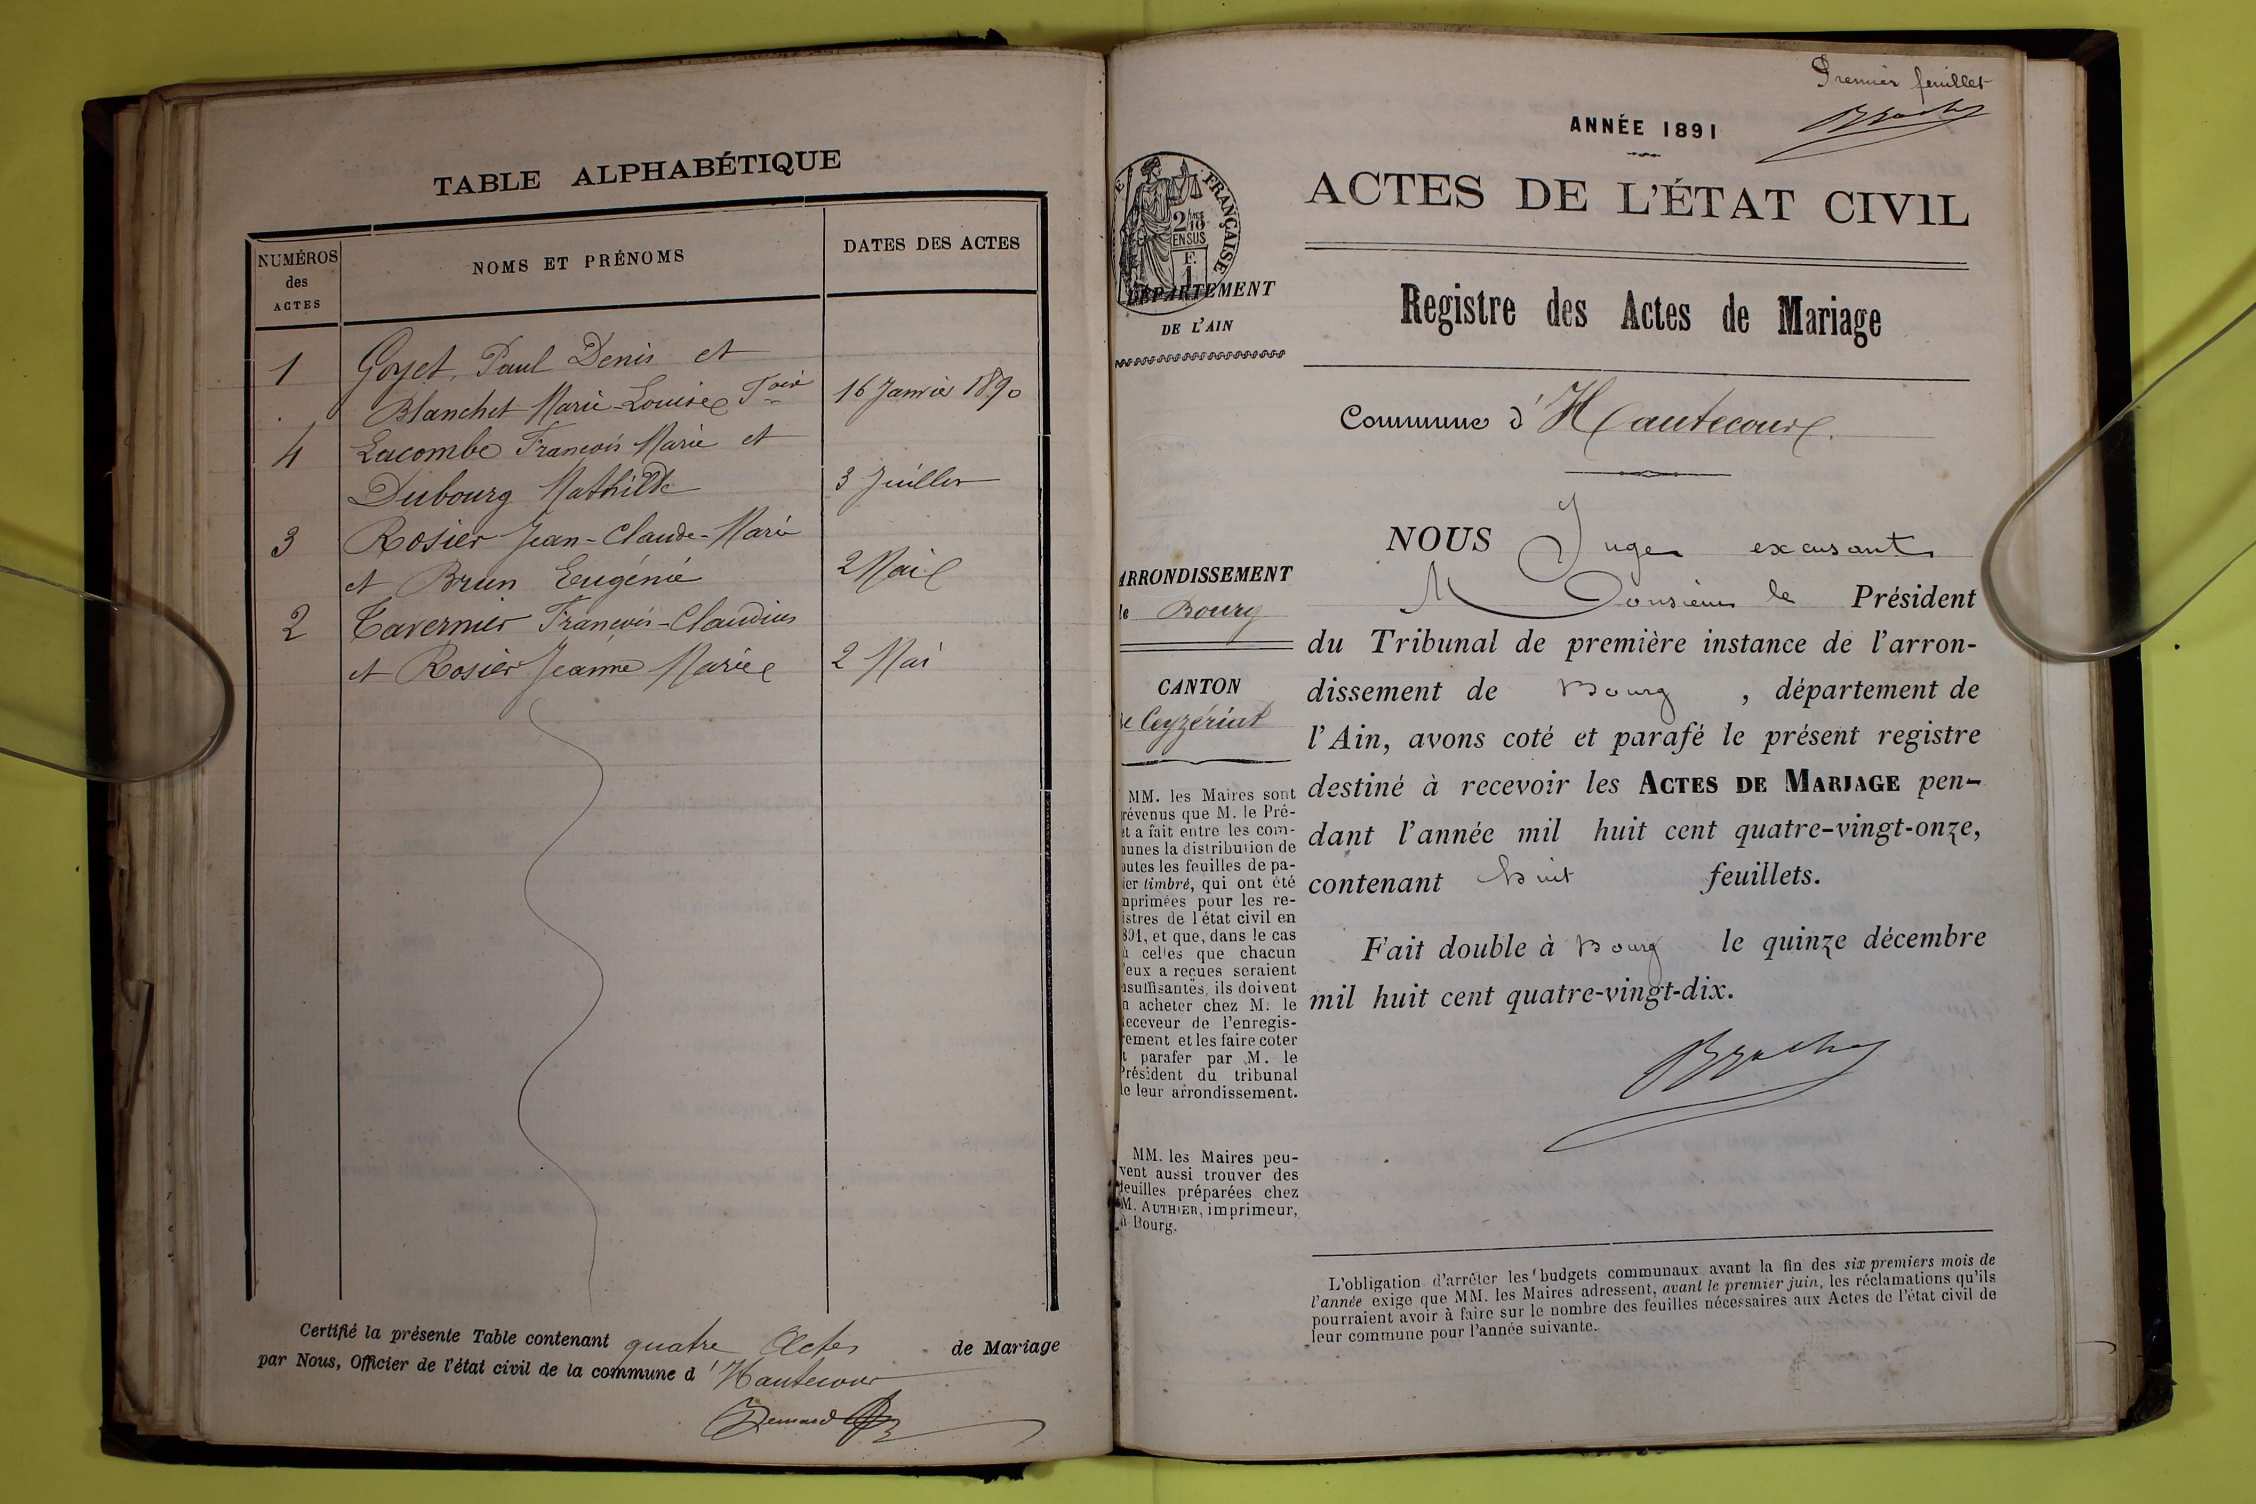 TABLE ALPHABÉTIQUE
NUMÉROS
des
ACTES
NOMS ET PRÉNOMS
DATES DES ACTES
1 Goyet, Paul Denis et
Blanchet Marie-Louise 16 Janvier 1890
4 Lacombe François Marie et
Dubourg Mathilde 3 Juillet
3 Rosier Jean-Claude-Marie
et Brun Eugénie 2 Mai
2 Tavernier François-Claudius
et Rosier Jeanne Marie 2 Mai
Certifié la présente Table contenant quatre Actes de Mariage
par Nous, Officier de l'état civil de la commune d'Hautecour
Premier feuillet
ANNÉE 1891
ACTES DE L'ÉTAT CIVIL
FRANÇAISE
2/10
EN SUS
F.
1
DÉPARTEMENT
DE L'AIN
Registre des Actes de Mariage
Commune d'Hautecour
ARRONDISSEMENT
de Bourg
CANTON
de Ceyzériat
MM. les Maires sont
révenus que M. le Pré-
et a fait entre les com-
unes la distribution de
outes les feuilles de pa-
ier timbré, qui ont été
mprimées pour les re-
istres de l'état civil en
891, et que, dans le cas
ù celles que chacun
'eux a reçues seraient
nsuffisantes, ils doivent
n acheter chez M. le
eceveur de l'enregis-
rement et les faire coter
t parafer par M. le
Président du tribunal
de leur arrondissement.
MM. les Maires peu-
vent aussi trouver des
feuilles préparées chez
M. AUTHIER, imprimeur,
à Bourg.
NOUS Juge excusant
Monsieur le Président
du Tribunal de première instance de l'arron-
dissement de Bourg, département de
l'Ain, avons coté et parafé le présent registre
destiné à recevoir les ACTES DE MARIAGE pen-
dant l'année mil huit cent quatre-vingt-onze,
contenant huit feuillets.
Fait double à Bourg le quinze décembre
mil huit cent quatre-vingt-dix.
L'obligation d'arrêter les budgets communaux avant la fin des six premiers mois de
l'année exige que MM. les Maires adressent, avant le premier juin, les réclamations qu'ils
pourraient avoir à faire sur le nombre des feuilles nécessaires aux Actes de l'état civil de
leur commune pour l'année suivante.